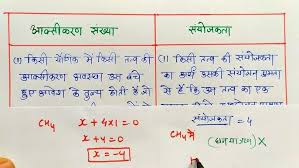 आक्सीकरण संख्या
संयोजकता
(1) किसी यौगिक में किसी तत्व की
आक्सीकरण अवस्था उस बचे
हुए आवेश के तुल्य होती है जो
(1) किसी तत्व की संयोजकता
का अर्थ उसकी संयोजन क्षमता
से है कि उस तत्व का एक
CH₄ x + 4×1 = 0
x + 4 = 0
x = -4
संयोजकता = 4
CH₄ में
X